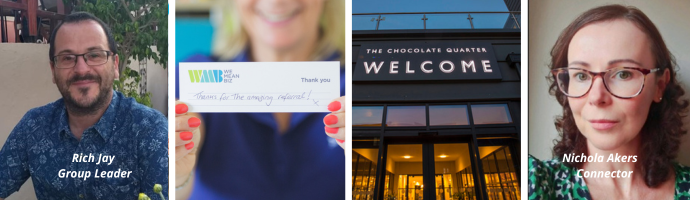 Rich Jay
Group Leader
WMB
WE
MEAN
BIZ
Thank you
Thanks for the amazing referral! x
THE CHOCOLATE QUARTER
WELCOME
Nichola Akers
Connector